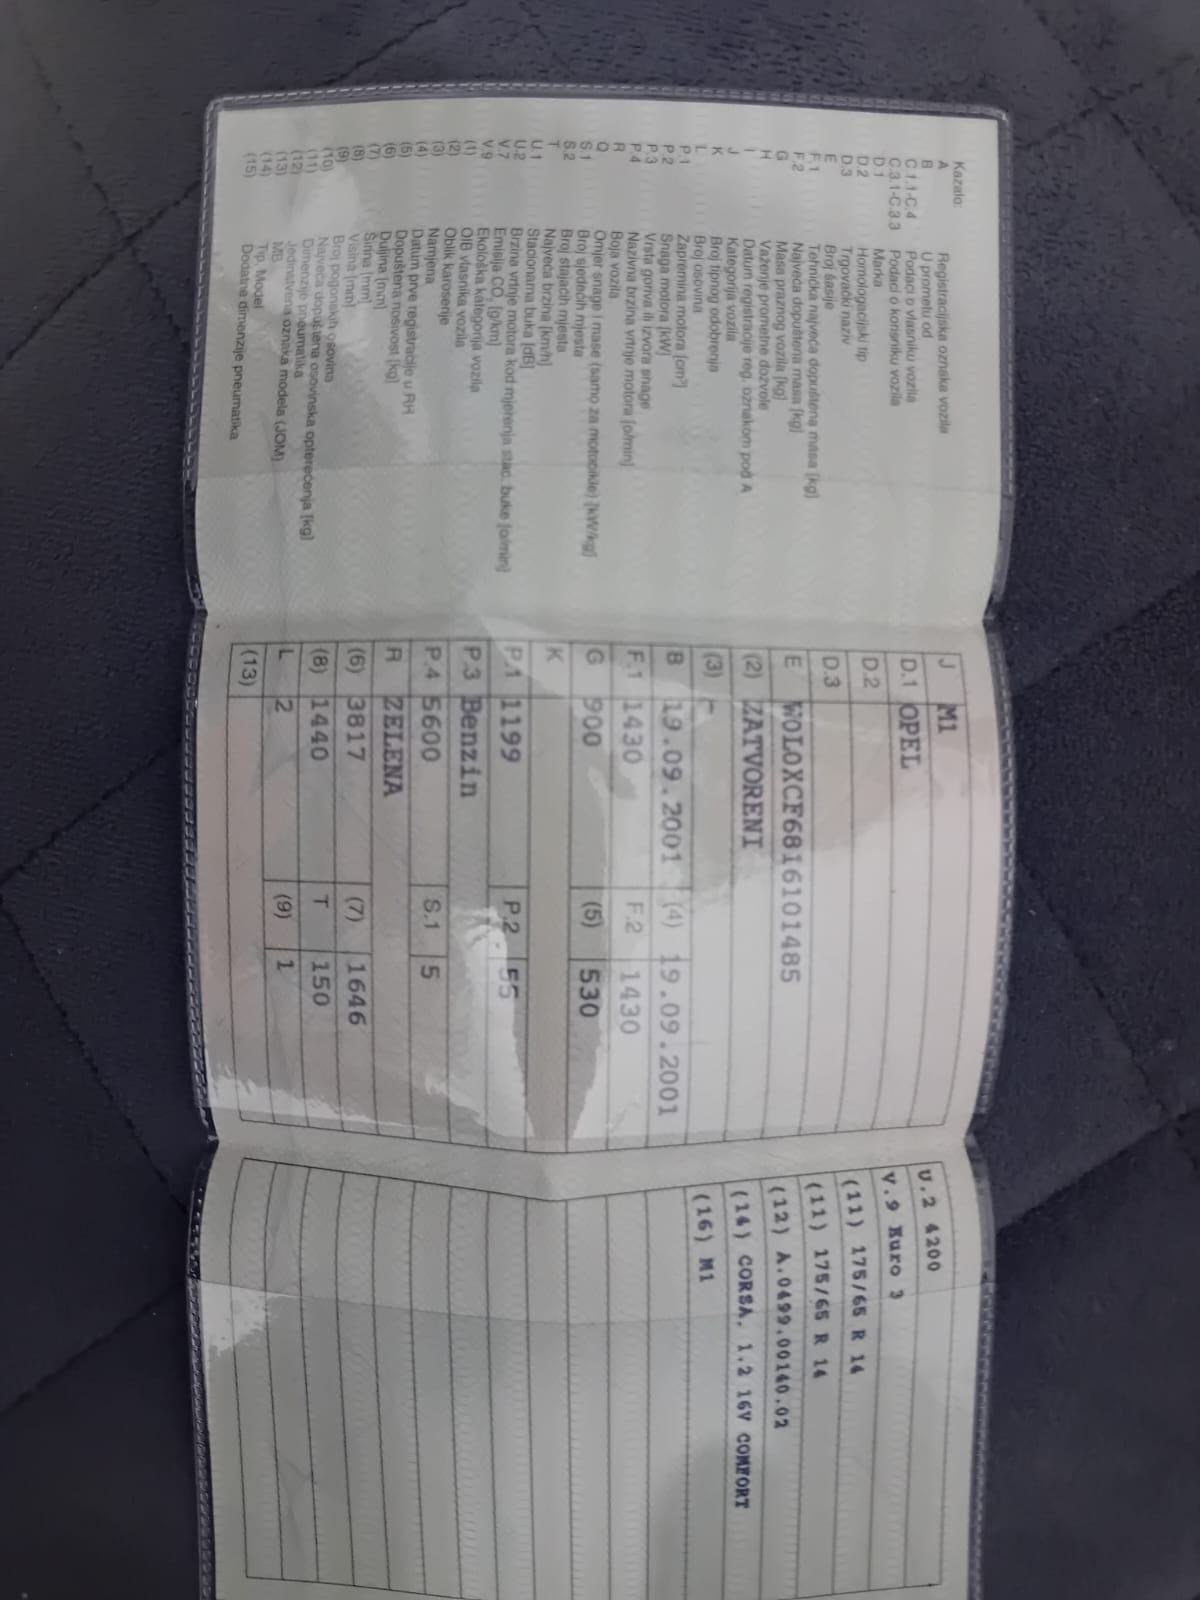 Kazalo:
A Registracijska oznaka vozila
B U prometu od
C.1.1-C.4 Podaci o vlasniku vozila
C.3.1-C.3.3 Podaci o korisniku vozila
D.1 Marka
D.2 Homologacijski tip
D.3 Trgovački naziv
E Broj šasije
F.1 Tehnička najveća dopuštena masa [kg]
F.2 Najveća dopuštena masa [kg]
G Masa praznog vozila [kg]
H Važenje prometne dozvole
I Datum registracije reg. oznakom pod A
J Kategorija vozila
K Broj tipnog odobrenja
L Broj osovina
P.1 Zapremina motora [cm³]
P.2 Snaga motora [kW]
P.3 Vrsta goriva ili izvora snage
P.4 Nazivna brzina vrtnje motora [o/min]
R Boja vozila
Q Omjer snage i mase (samo za motocikle) [kW/kg]
S.1 Broj sjedećih mjesta
S.2 Broj stajaćih mjesta
T Najveća brzina [km/h]
U.1 Stacionarna buka [dB]
U.2 Brzina vrtnje motora (kod mjerenja stac. buke [o/min]
V.7 Emisija CO₂ [g/km]
V.9 Ekološka kategorija vozila
(1) OIB vlasnika vozila
(2) Oblik karoserije
(3) Namjena
(4) Datum prve registracije u RH
(5) Dopuštena nosivost [kg]
(6) Duljina [mm]
(7) Širina [mm]
(8) Visina [mm]
(9) Broj pogonskih osovina
(10) Najveća dopuštena osovinska opterećenja [kg]
(11) Dimenzije pneumatika
(12) Jedinstvena oznaka modela (JOM)
(13) MB
(14) Tip, Model
(15) Dodatne dimenzije pneumatika
J M1
D.1 OPEL
D.2
D.3
E W0L0XCF6816101485
(2) ZATVORENI
(3) -
B 19.09.2001 (4) 19.09.2001
F.1 1430 F.2 1430
G 900 (5) 530
K
P.1 1199 P.2 55
P.3 Benzin
P.4 5600 S.1 5
R ZELENA
(6) 3817 (7) 1646
(8) 1440 T 150
L 2 (9) 1
(13)
U.2 4200
V.9 Euro 3
(11) 175/65 R 14
(11) 175/65 R 14
(12) A.0499.00140.02
(14) CORSA, 1.2 16V COMFORT
(16) M1